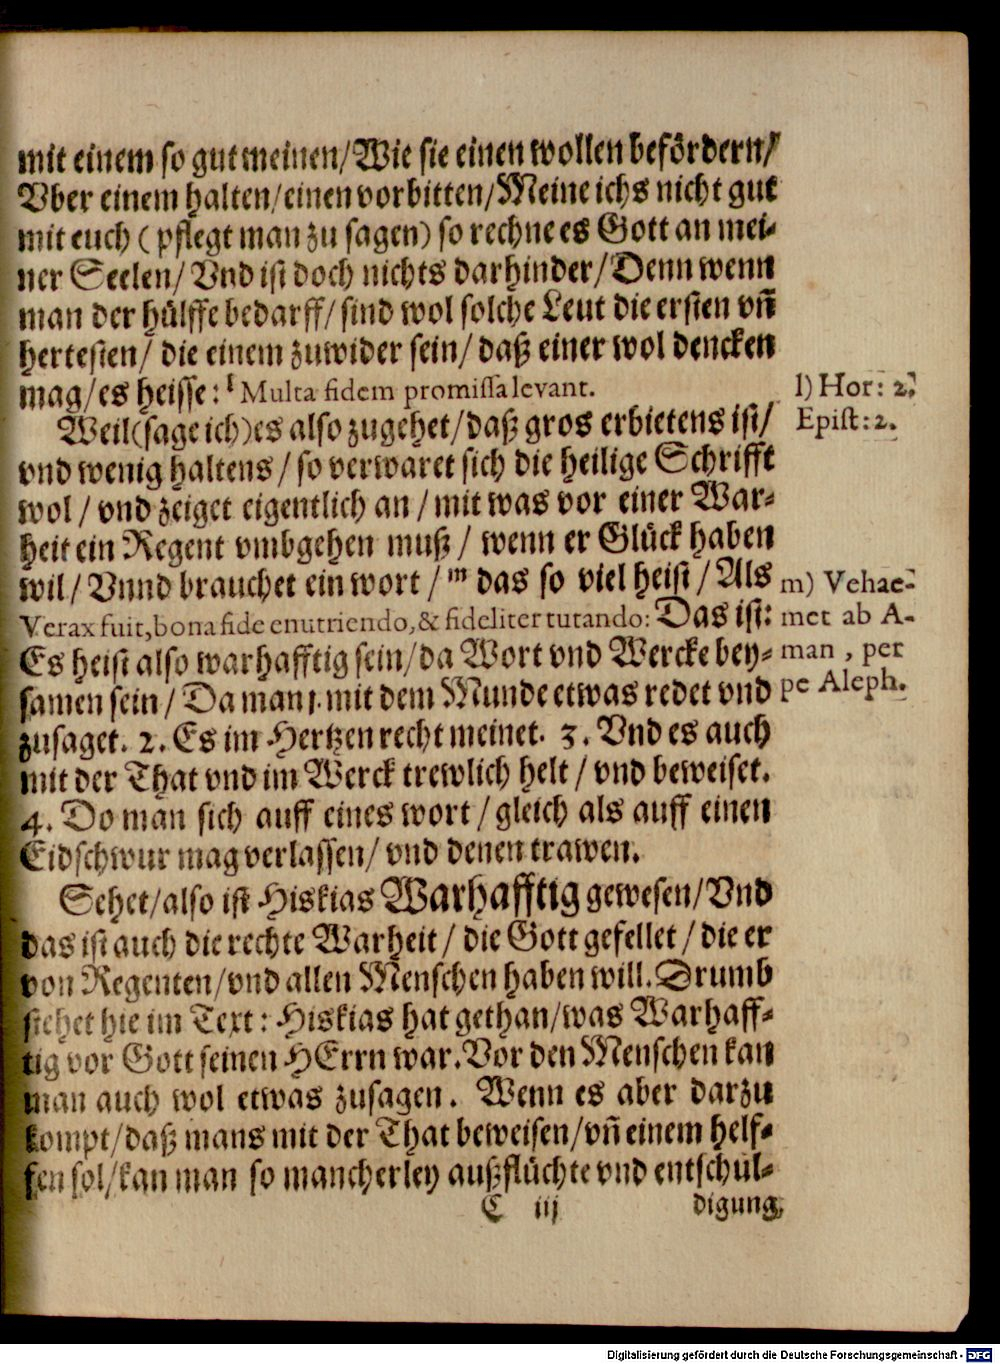 mit einem so gut meinen/Wie sie einen wollen befördern/
Vber einem halten/einen vorbitten/Meine ichs nicht gut
mit euch (pflegt man zu sagen) so rechne es Gott an mei-
ner Seelen/ Vnd ist doch nichts darhinder/Denn wenn
man der hülffe bedarff/sind wol solche Leut die ersten vñ
hertesten/ die einem zuwider sein/ daß einer wol dencken
mag/es heisse: l Multa fidem promissa levant.
l) Hor: 2.
Epist: 2.
Weil(sage ich)es also zugehet/daß gros erbietens ist/
vnd wenig haltens / so verwaret sich die heilige Schrifft
wol / vnd zeiget eigentlich an / mit was vor einer War-
heit ein Regent vmbgehen muß / wenn er Glück haben
wil/ Vnnd brauchet ein wort / m das so viel heist / Als
Verax fuit, bona fide enutriendo, & fideliter tutando: Das ist:
Es heist also warhafftig sein/da Wort vnd Wercke bey-
samen sein/ Da man 1. mit dem Munde etwas redet vnd
m) Vehae-
met ab A-
man , per
pe Aleph.
zusaget. 2. Es im Hertzen recht meinet. 3. Vnd es auch
mit der That vnd im Werck trewlich helt / vnd beweiset.
4. Do man sich auff eines wort / gleich als auff einen
Eidschwur mag verlassen/ vnd denen trawen.
Sehet/also ist Hiskias Warhafftig gewesen/Vnd
das ist auch die rechte Warheit/ die Gott gefellet / die er
von Regenten/vnd allen Menschen haben will. Drumb
stehet hie im Text: Hiskias hat gethan/was Warhaff-
tig vor Gott seinen HErrn war. Vor den Menschen kan
man auch wol etwas zusagen. Wenn es aber darzu
kompt/daß mans mit der That beweisen/vñ einem helf-
fen sol/kan man so mancherley außflüchte vnd entschul-
C iij digung,
Digitalisierung gefördert durch die Deutsche Forschungsgemeinschaft - DFG